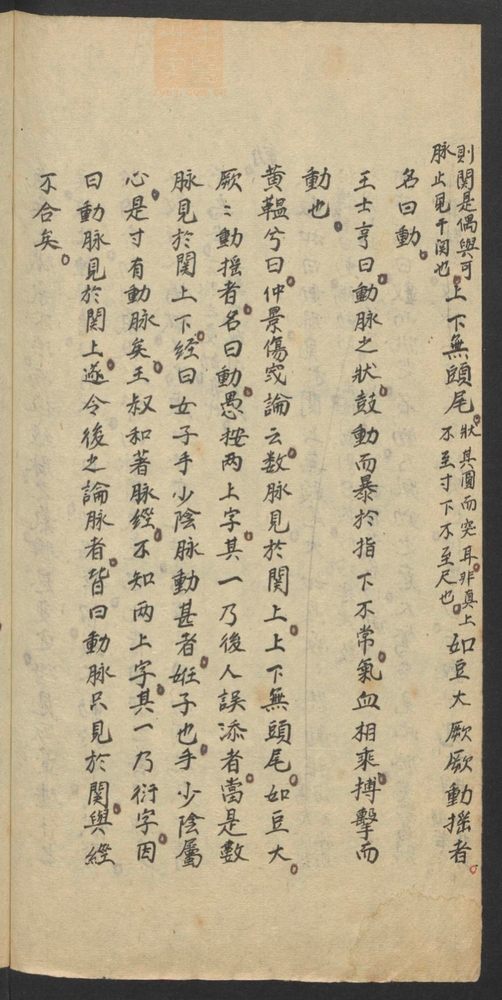 則関是偶與可脉止見于関也上下無頭尾狀其圓而突耳非真上不至寸下不至尺也如豆大厥厥動搖者
名曰動
王士亨曰動脉之狀鼓動而暴於指下不常氣血相乘搏擊而
動也
黄韞兮曰仲景傷寒論云数脉見於関上上下無頭尾如豆大
厥〻動搖者名曰動愚按两上字其一乃後人誤添者當是數
脉見於関上下經曰女子手少陰脉動甚者姙子也手少陰屬
心是寸有動脉矣王叔和著脉經不知两上字其一乃衍字因
曰動脉見於関上遂令後之論脉者皆曰動脉只見於関與經
不合矣